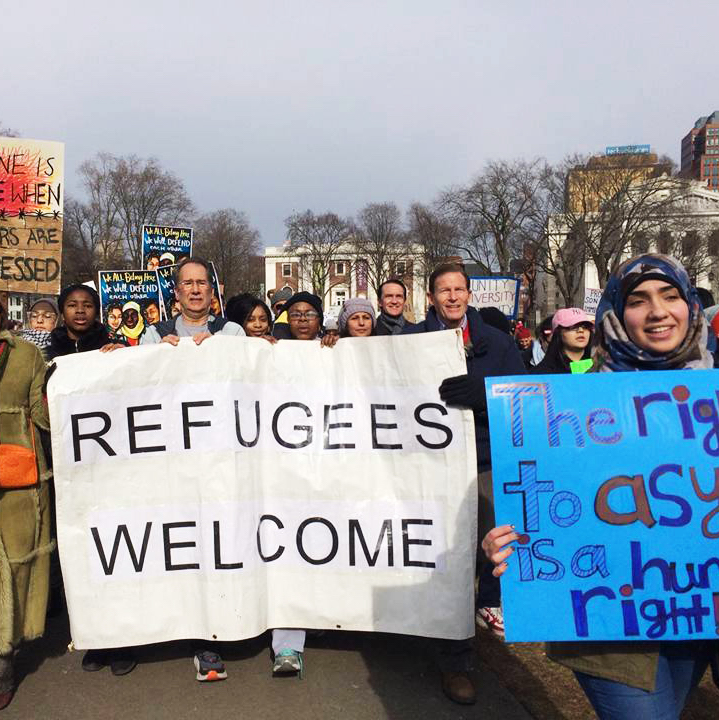 NE IS
WHEN
RS ARE
ESSED
We All Belong Here
We Will DEFEND
each other
We All Belong Here
We Will DEFEND
each other
UNITY
VERSITY
REFUGEES
WELCOME
The rig
to asy
is a hum
right!